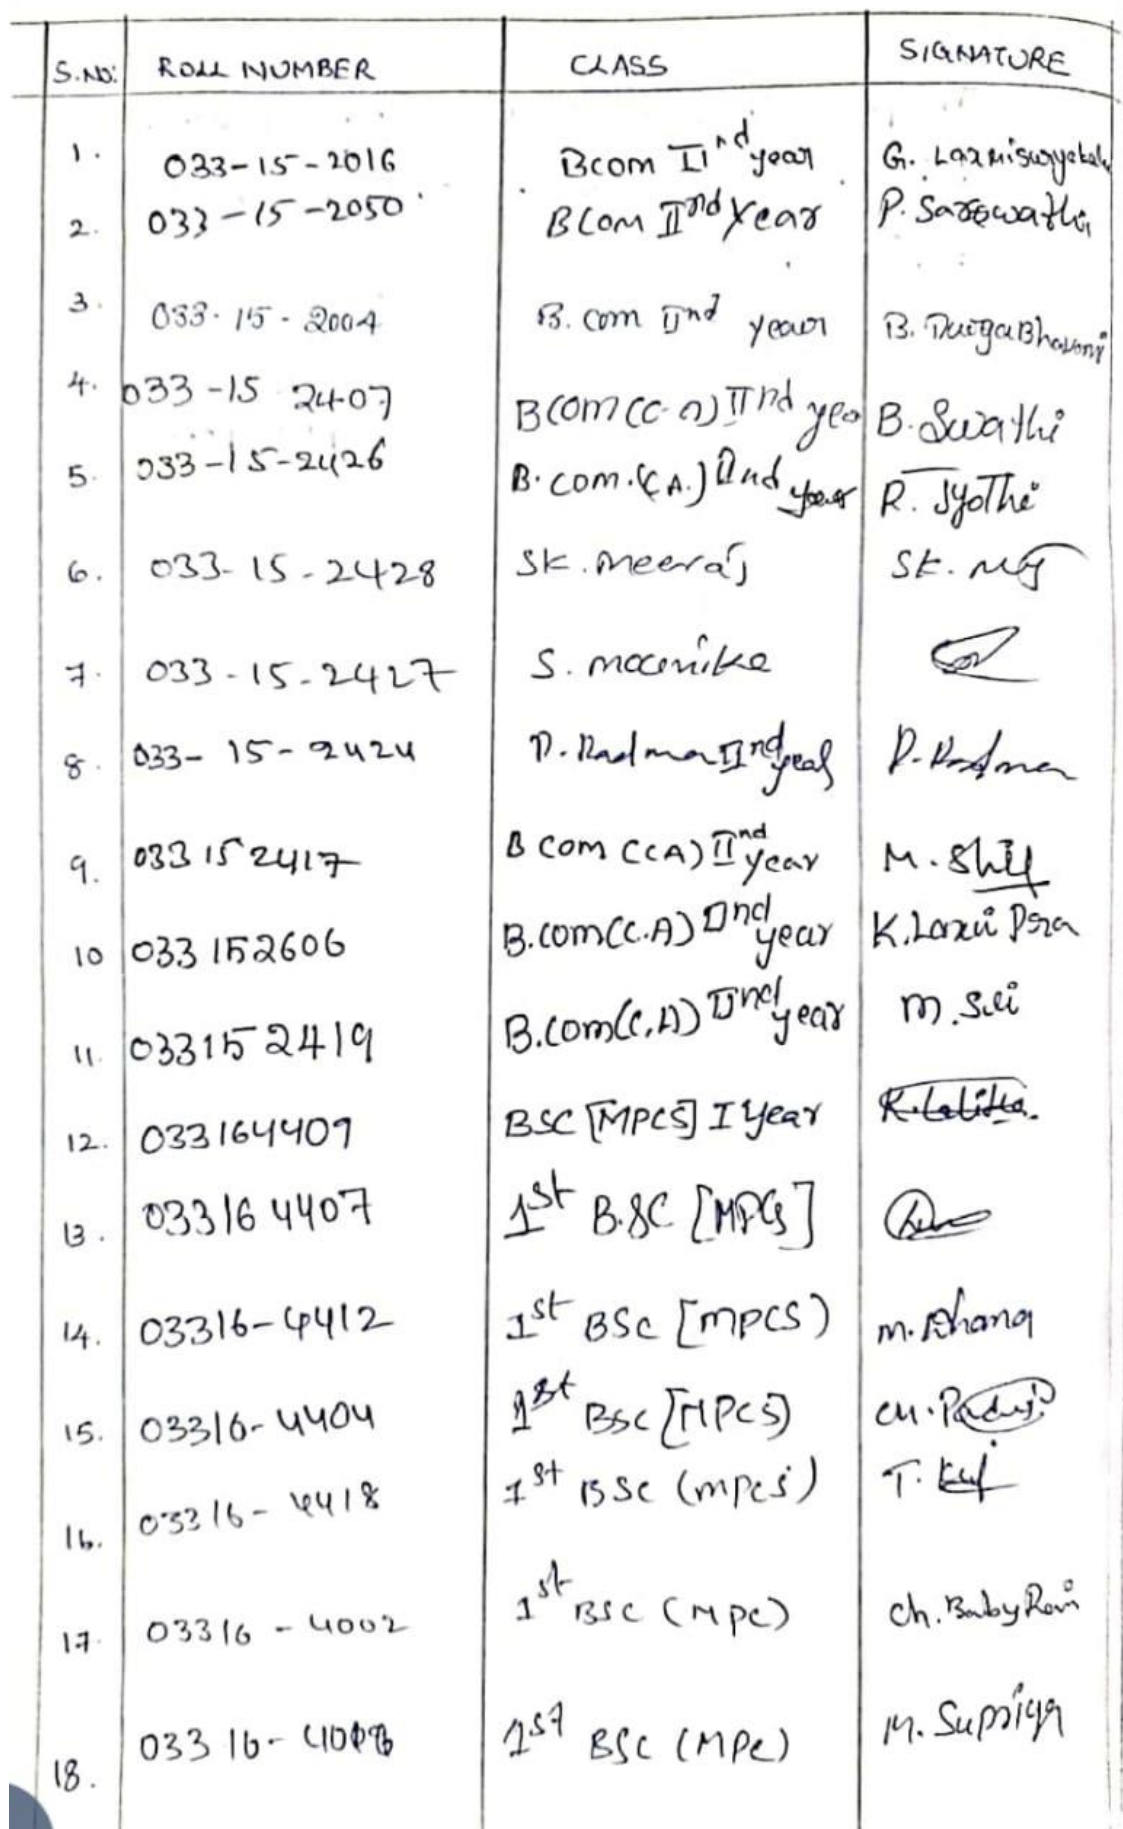 S.NO: ROLL NUMBER CLASS SIGNATURE
1. 033-15-2016 Bcom IInd year G. Laxmisuryakala
2. 033-15-2050 BCom IInd Year P. Saraswathi
3. 033-15-2004 B.com IInd year B. DurgaBhavani
4. 033-15 2407 BCom(C.A) IInd yea B. Swathi
5. 033-15-2426 B.com.(CA.) IInd year R. Jyothi
6. 033-15-2428 SK.meeraj SK.
7. 033-15-2427 S. mounika
8. 033-15-2424 P.Padma IInd year P.Padma
9. 033 15 2417 B com (CA) IInd year M.
10 033 152606 B.com(C.A) IInd year K.Laxmi
11. 033152419 B.com(C.A) IInd year M.
12. 033164409 BSC [MPCS] I Year K.Lalitha.
13. 033164407 1st B.SC [MPCS]
14. 03316-4412 1st BSc [MPCS) M.
15. 03316-4404 1st BSc [MPCS) CH.
16. 03316-4418 1st BSc (mpcs) T.
17. 03316-4002 1st BSC (MPC) Ch. BabyRani
18. 03316- 1st BSC (MPC) M. Supriya